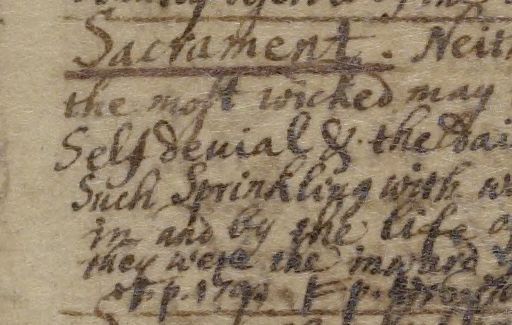 Sacrament. Neith
the most wicked may
Self denial & the dai
Such Sprinkling with w
in and by the life o
they were the inward